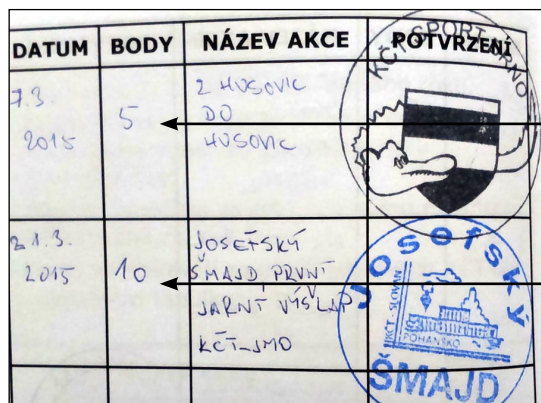 DATUM BODY NÁZEV AKCE POTVRZENÍ
7.3. 2015
5
Z HUSOVIC
DO
HUSOVIC
KČT SPORT BRNO
21.3.
2015
10
JOSEFSKÝ
ŠMAJD, PRVNÍ
JARNÍ VÝŠLAP
KČT-JMO
Josefský
KČT-SLOVAN
POHANSKO
ŠMAJD